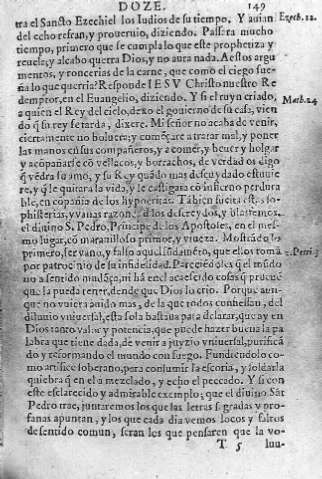 DOZE. 149
tra el Sancto Ezechiel los Iudios de su tiempo. Y auian
del echo refran, y proueruio, diziendo. Passera mucho
tiempo, primero que se cumpla lo que este prophetiza y
reuela; y al cabo guerra Dios, y no aura nada. A estos argu
mentos, y roncerias de la carne, que como el ciego sueña
lo que querria? Responde IESV Christo nuestro Re
demptor, en el Euangelio, diziendo. Y si el ruyn criado,
a quien el Rey del cielo, dexo el gouierno de su casa, vien
do q̃ su rey se tarda, dixere. Mi señor no acaba de venir,
ciertamente no boluera; y començare a tratar mal, y poner
las manos en sus compañeros, y a comer, y beuer y holgar
y acõpañarse cõ vellacos, y borrachos, de verdad os digo
q̃ vẽdra su amo, y su Rey quãdo mas descuydado estuuie
re, y q̃ le quitara la vida, y le castigara cõ infierno perdura
ble, en cõpañia de los hypocritas. Tãbien suelta estas so-
phisterias, y vanas razones de los descreydos, y blasfemos,
el diuino S. Pedro, Principe de los Apostoles, en el mes-
mo lugar, cõ marauilloso primor, y viueza. Mostrãdo lo
primero, ser vano, y falso aquel fundamẽto, que ellos tomã
por patrocinio de su infidelidad. Pareciẽdoles q̃ el mũdo
no a sentido mudãça, ni ha en el acaescido cosa q̃ produce
que la pueda tener, dende que Dios lo crio. Porque aun-
que no vuiera auido mas, de la que todos confiessan, del
diluuio vniuersal, esta sola bastaua para declarar, que ay en
Dios tanto valor y potencia, que puede hazer buena la pa
labra que tiene dada, de venir a juyzio vniuersal, purificã
do y reformando el mundo con fuego. Fundiendolo co-
mo artifice soberano, para consumir la escoria, y soldar la
quiebra q̃ en el a mezclado, y echo el peccado. Y si con
este esclarecido y admirable exemplo; que el diuino Sãt
Pedro trae, juntaremos los que las letras sagradas y pro-
fanas apuntan, y los que cada dia vemos locos y faltos
de sentido comun, seran los que pensaren que la vo-
T 5 luu-
Ezech. 12.
Math. 24
2. Petri 3